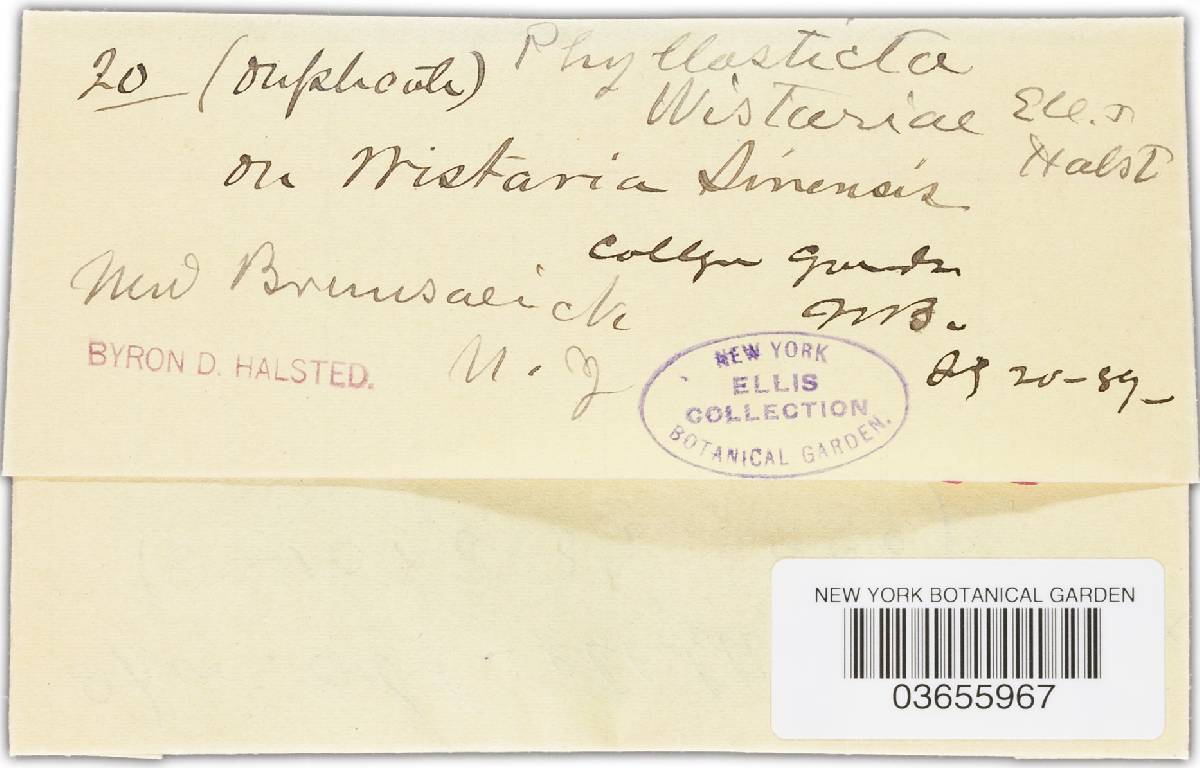 20 (Duplicate) Phyllosticta
Wistariae Ell. &
Halst
on Wistaria Sinensis
College Garden
New Brunswick
N.B.
BYRON D. HALSTED.
N. J
20-89
NEW YORK
ELLIS
COLLECTION
BOTANICAL GARDEN.
NEW YORK BOTANICAL GARDEN
03655967